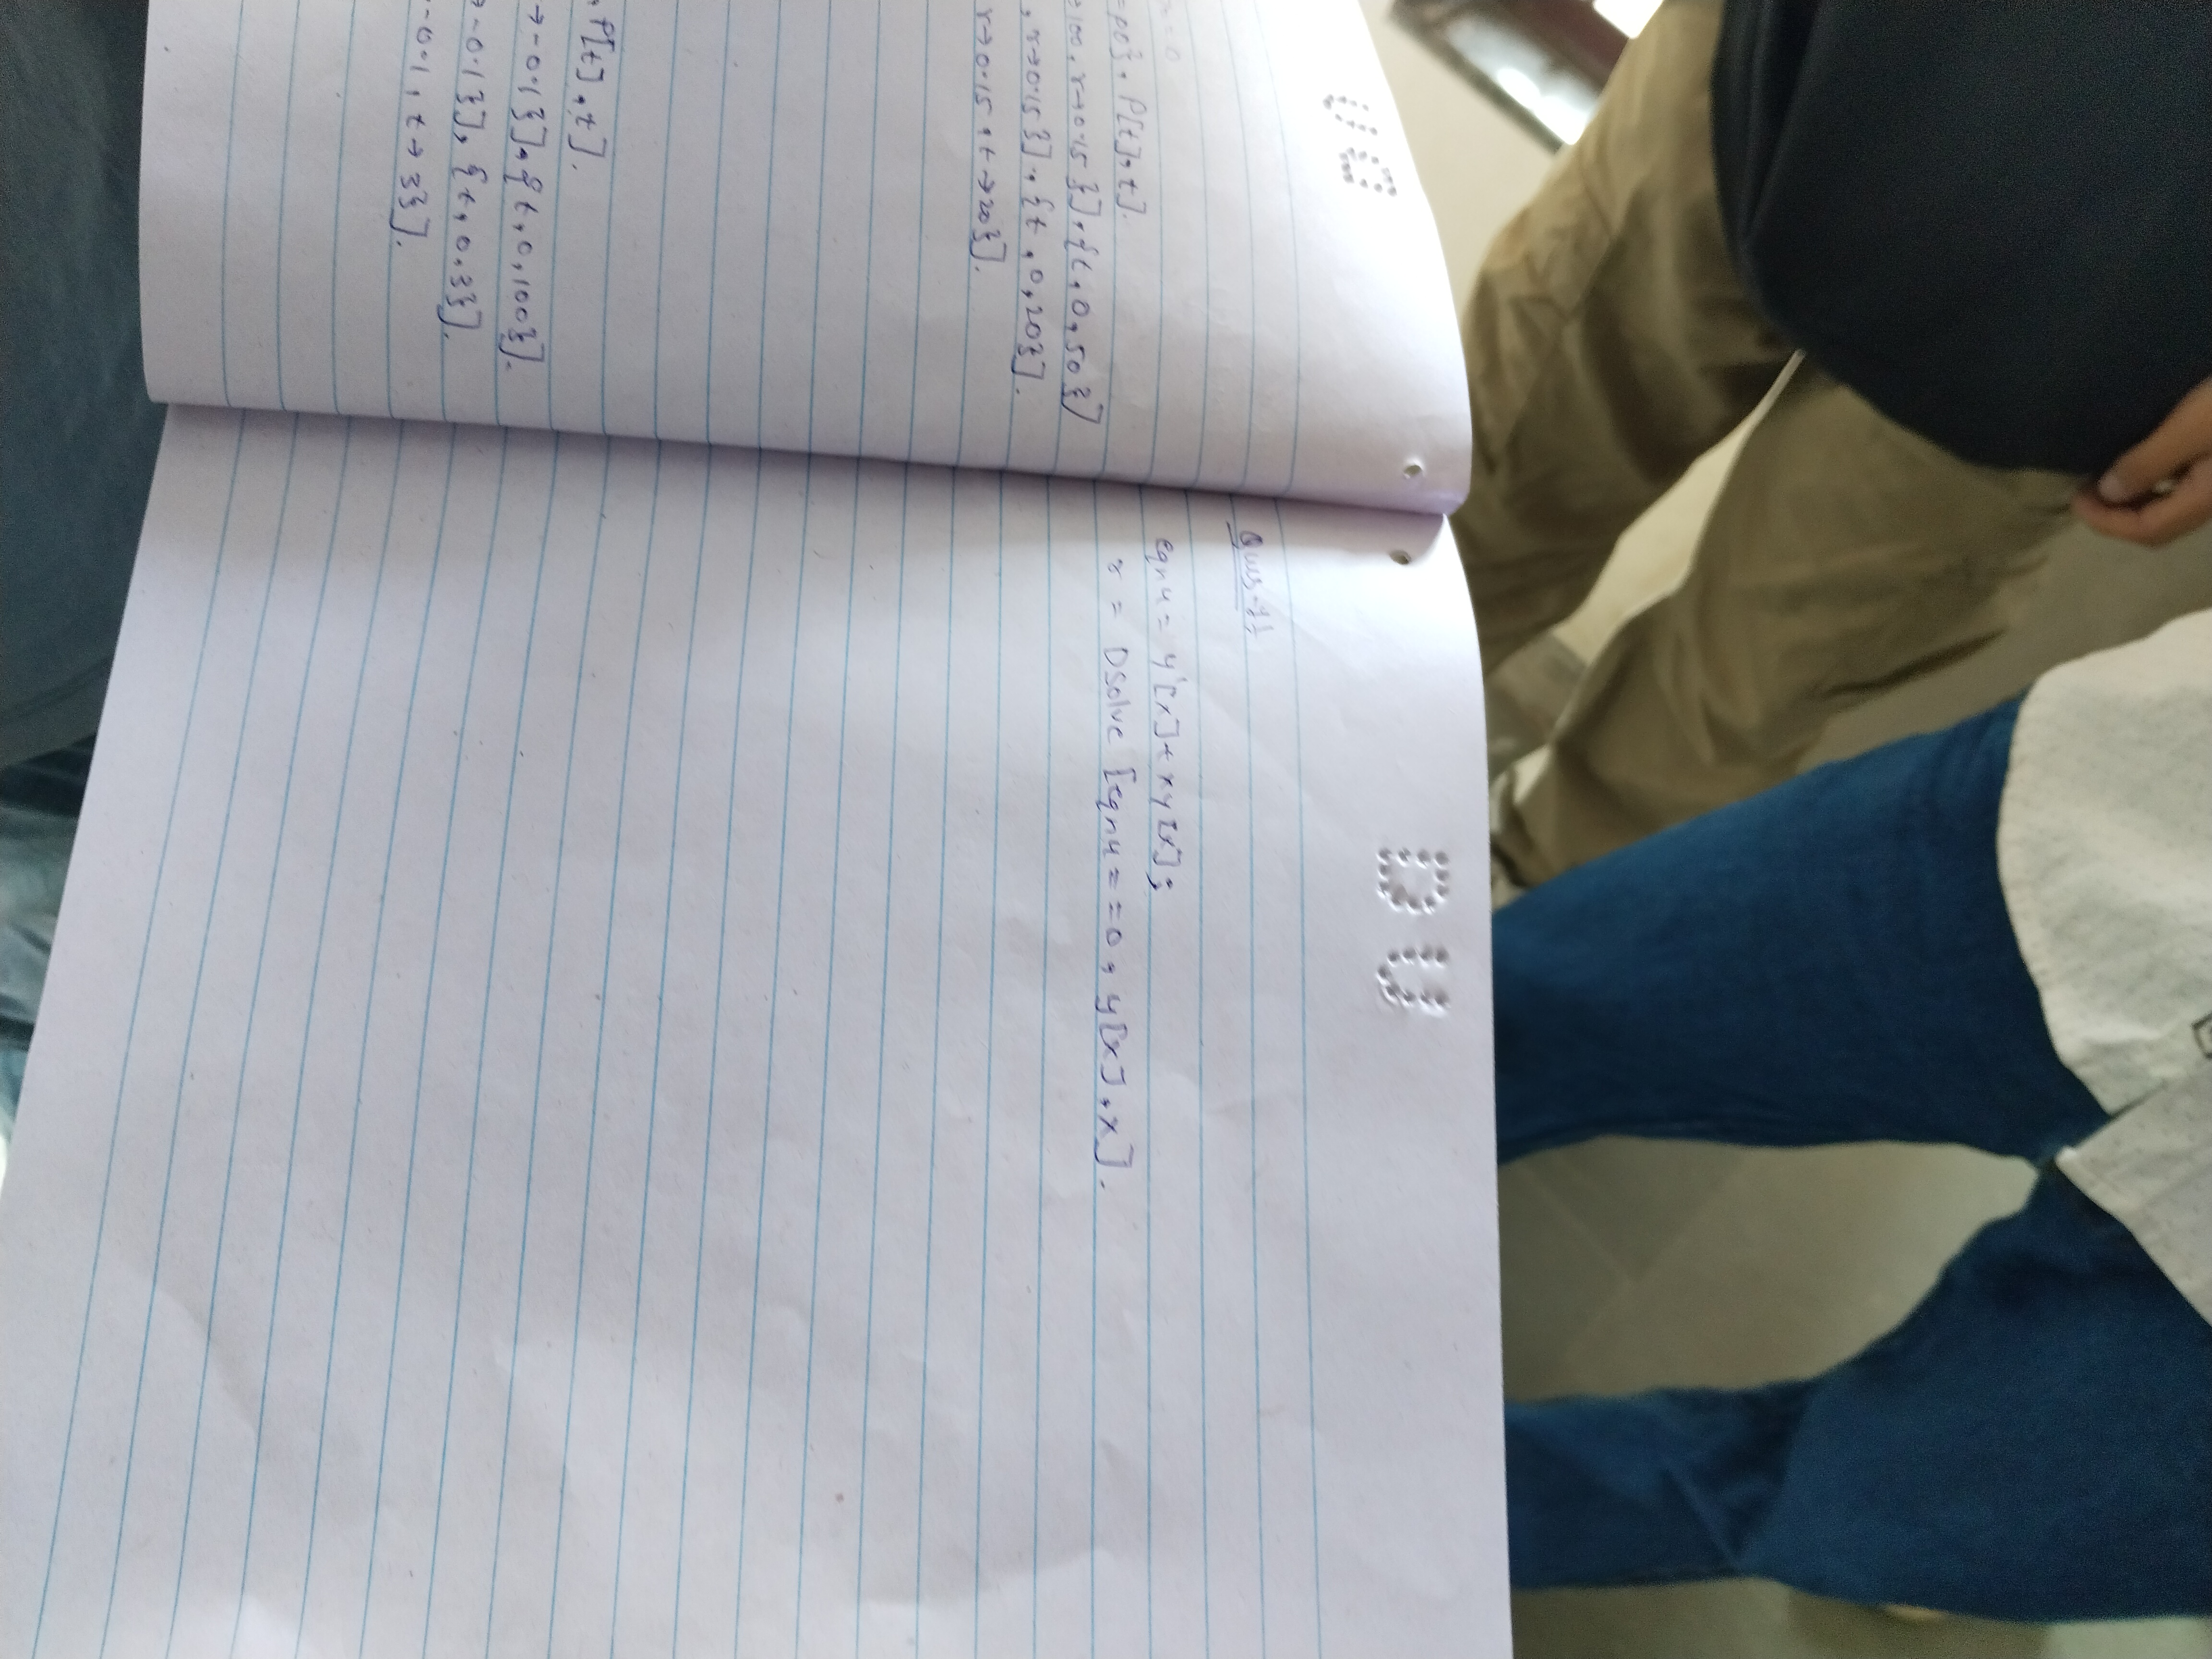 = 0
=P0}, P[t], t].
→100, r→0.15}], {t, 0, 50}]
, r→0.15}], {t, 0, 20}].
r→0.15, t→20}].
, P[t], t].
→-0.1}], {t, 0, 100}].
→-0.1}], {t, 0, 3}].
-0.1, t→3}].
Ques-4)
eqn4 = y'[x]+xy[x];
r = DSolve [eqn4==0, y[x], x].